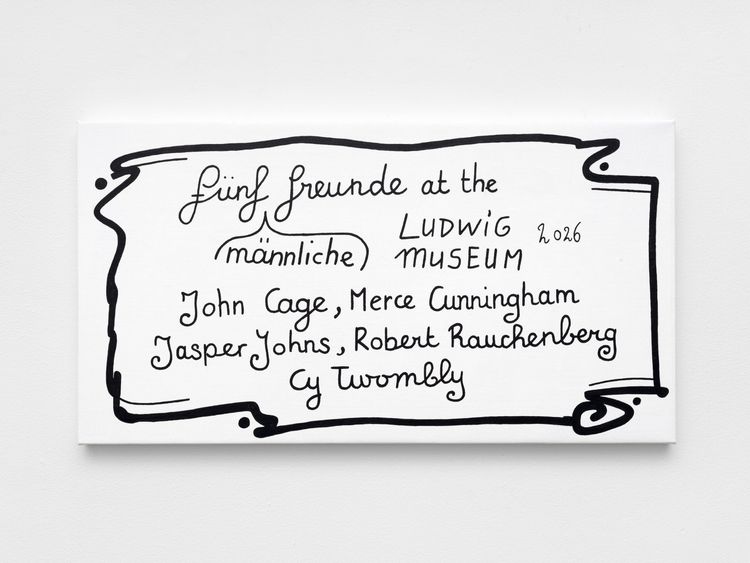 fünf freunde at the
(männliche) LUDWiG 2026
MUSEUM
John Cage, Merce Cunningham
Jasper Johns, Robert Rauchenberg
Cy Twombly